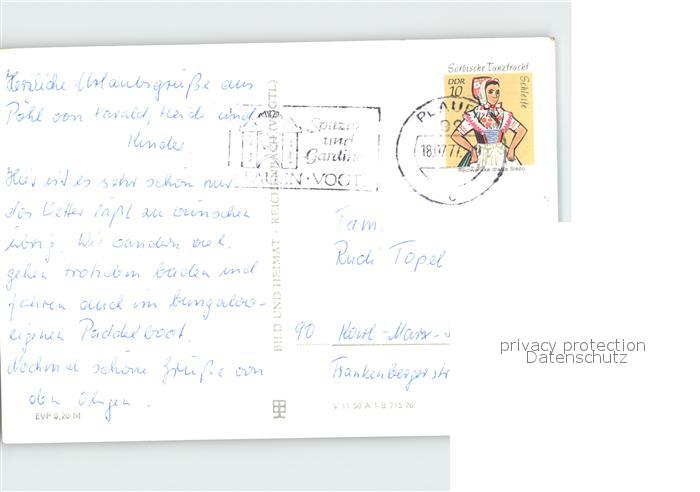 Herzliche Urlaubsgrüße aus
Pöhl von Harald, Heidi und
Kinder.
Hier ist es sehr schön nur
das Wetter läßt zu wünschen
übrig. Wir wandern viel,
gehen trotzdem baden und
fahren auch im bungalow-
eigenen Paddelboot.
Nochmal schöne Grüße von
den Obigen.
EVP 0,20 M
BILD UND HEIMAT · REICHENBACH (VOGTL)
Spitzen
und
Gardinen
PLAUEN · VOGTL
PLAUEN
18.07.77
c
Sorbische Tanztracht
DDR
10
Schleife
Fam.
Rudi Topel
90 Karl-Marx-S
Frankenbergerstr
V 11 50 A 1/B 715/76
privacy protection
Datenschutz